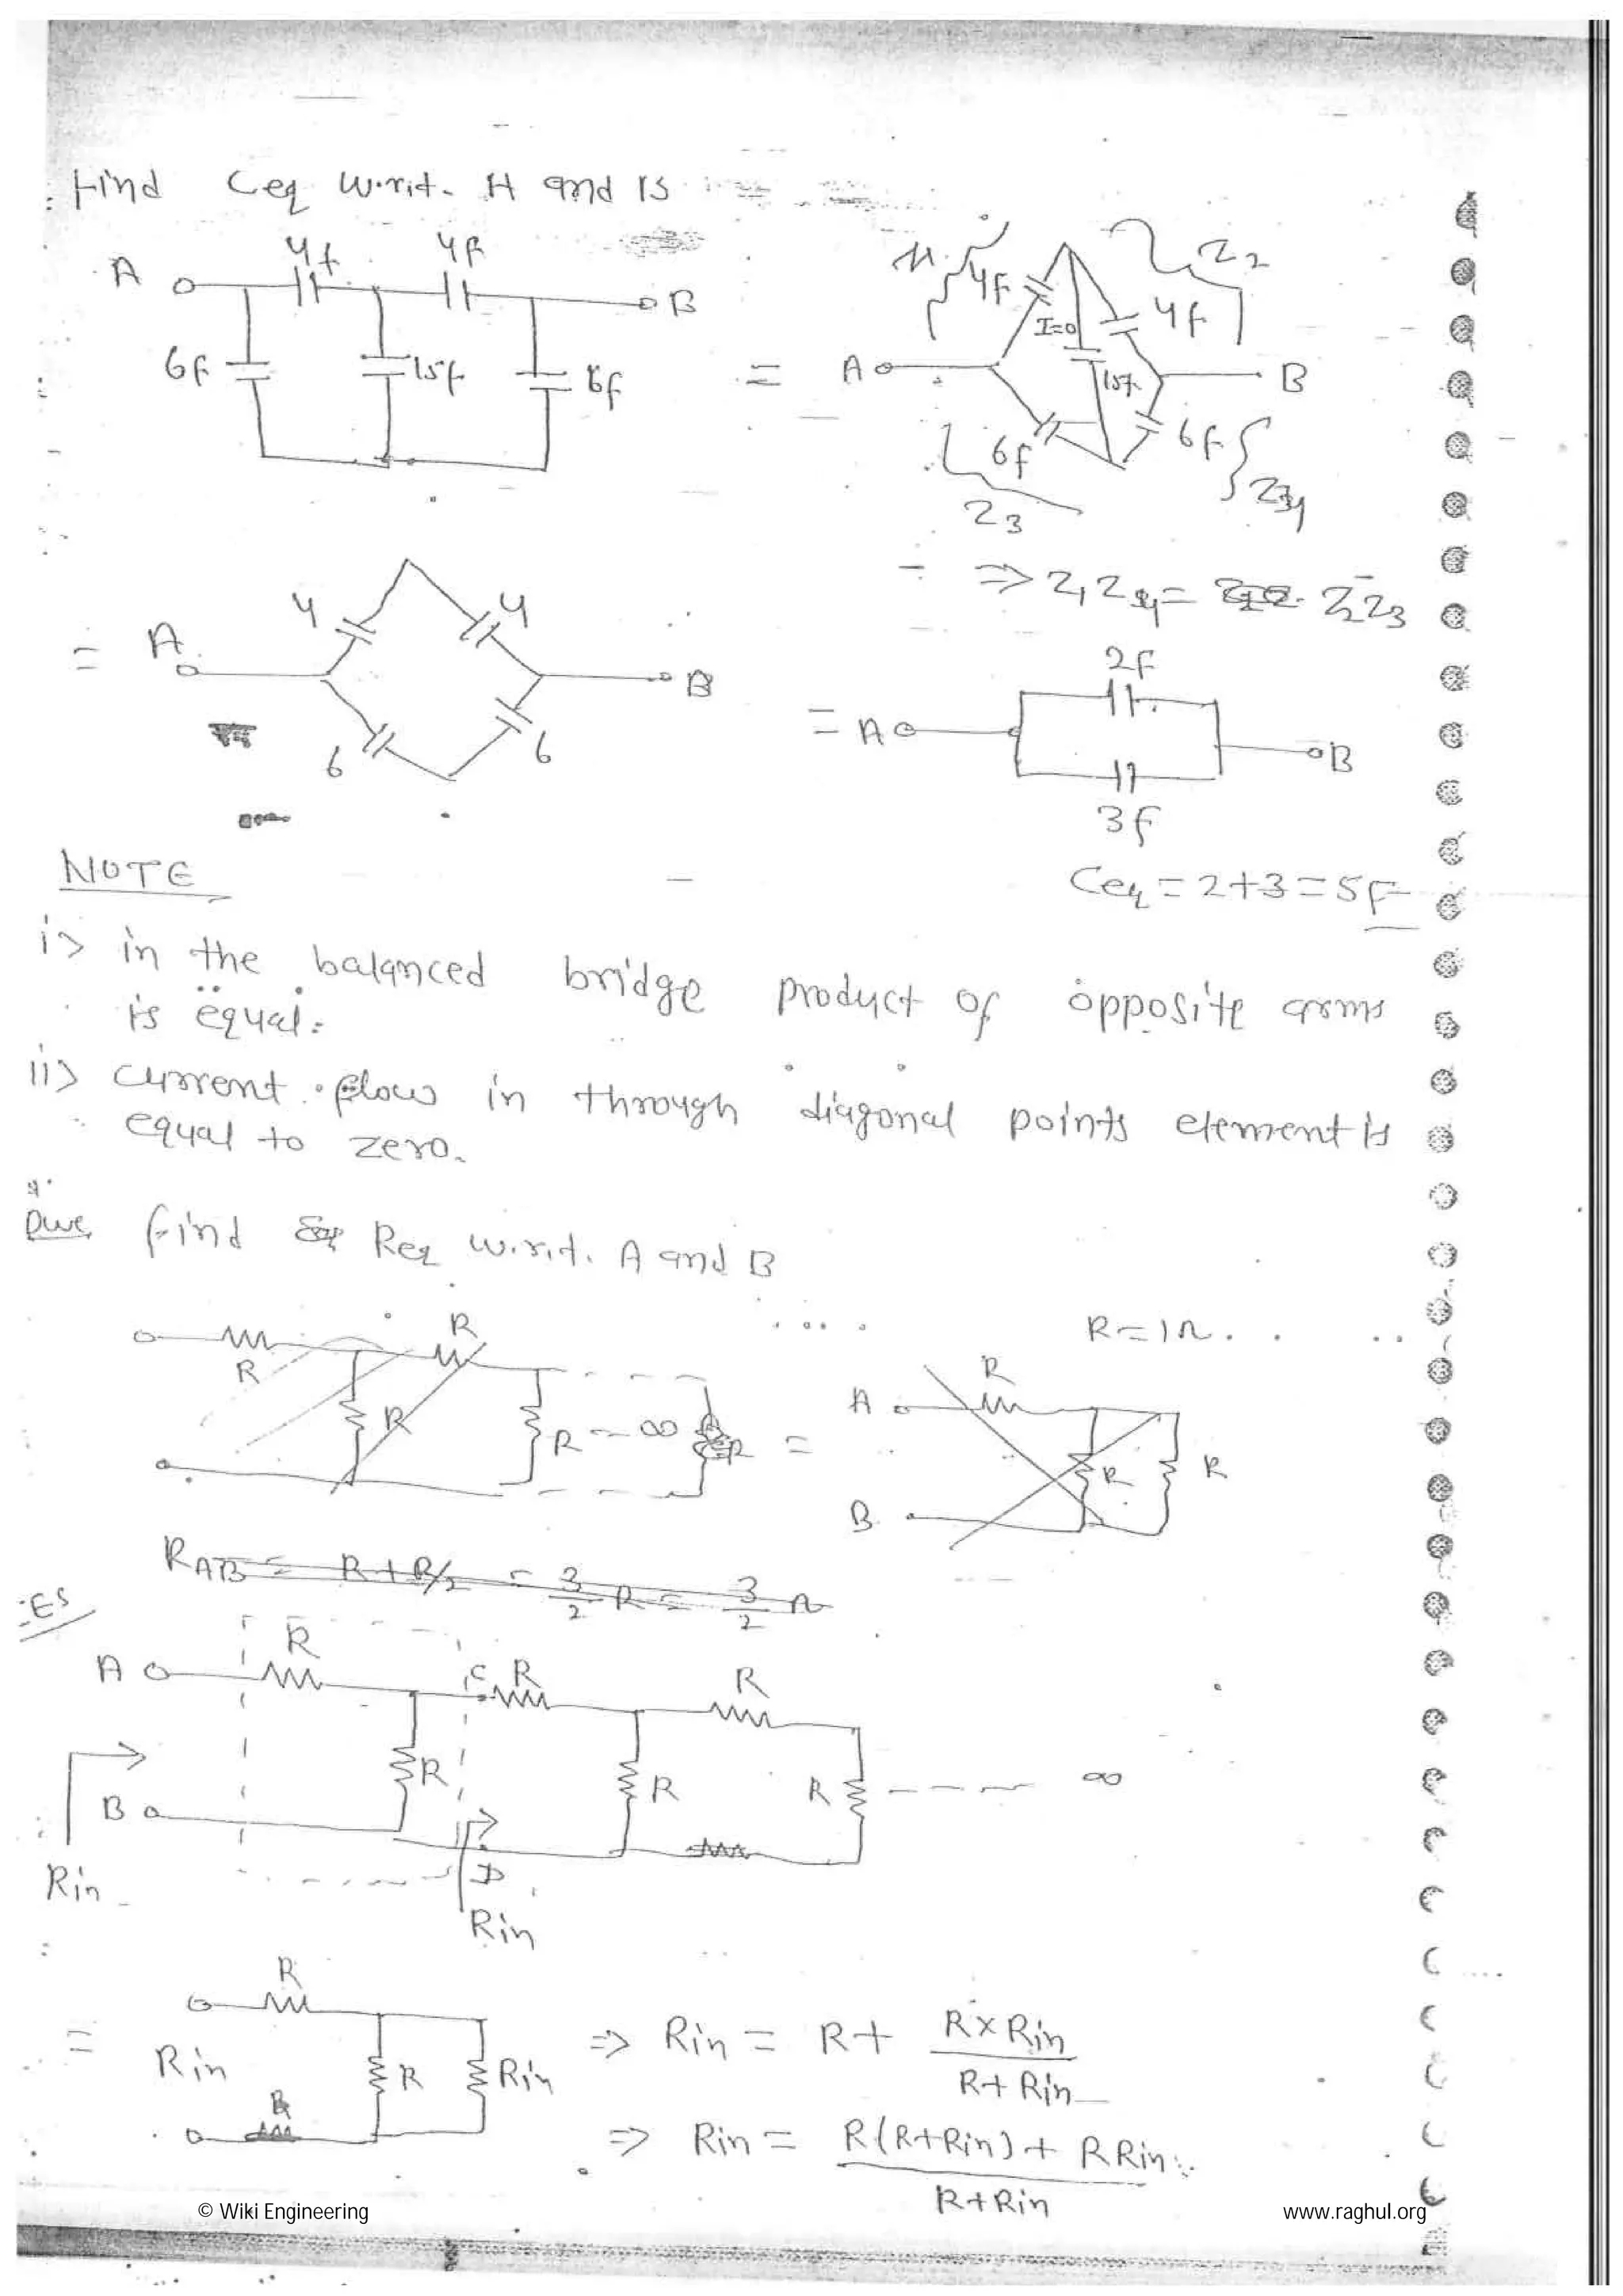 Find Ceq w.r.t. A and B
A 4f 4f B
6f 15f 6f
= A 4F 4f I=0 15f 6f 6f B
Z2
Z3
Z4
⇒ Z1 Z4 = Z2 Z3
= A 4 4 B
6 6
= A 2F B
3f
Ceq = 2+3 = 5F
NOTE
i> in the balanced bridge product of opposite arms
is equal.
ii> current flow in through diagonal points element is
equal to zero.
Que find Req w.r.t. A and B
R = 1Ω
R R R R ∞ R =
A R R R
B
RAB = R + R/2 = 3/2 R = 3/2 Ω
A R C R R
R R R ∞
B D
Rin Rin
= R
Rin R Rin
R
⇒ Rin = R + R×Rin / R+Rin
⇒ Rin = R(R+Rin) + RRin / R+Rin
© Wiki Engineering www.raghul.org